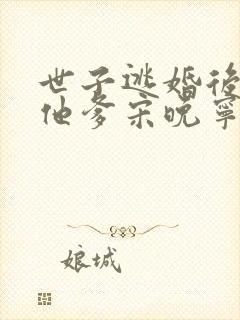 世子逃婚後
他爹宋晚寧
娘城